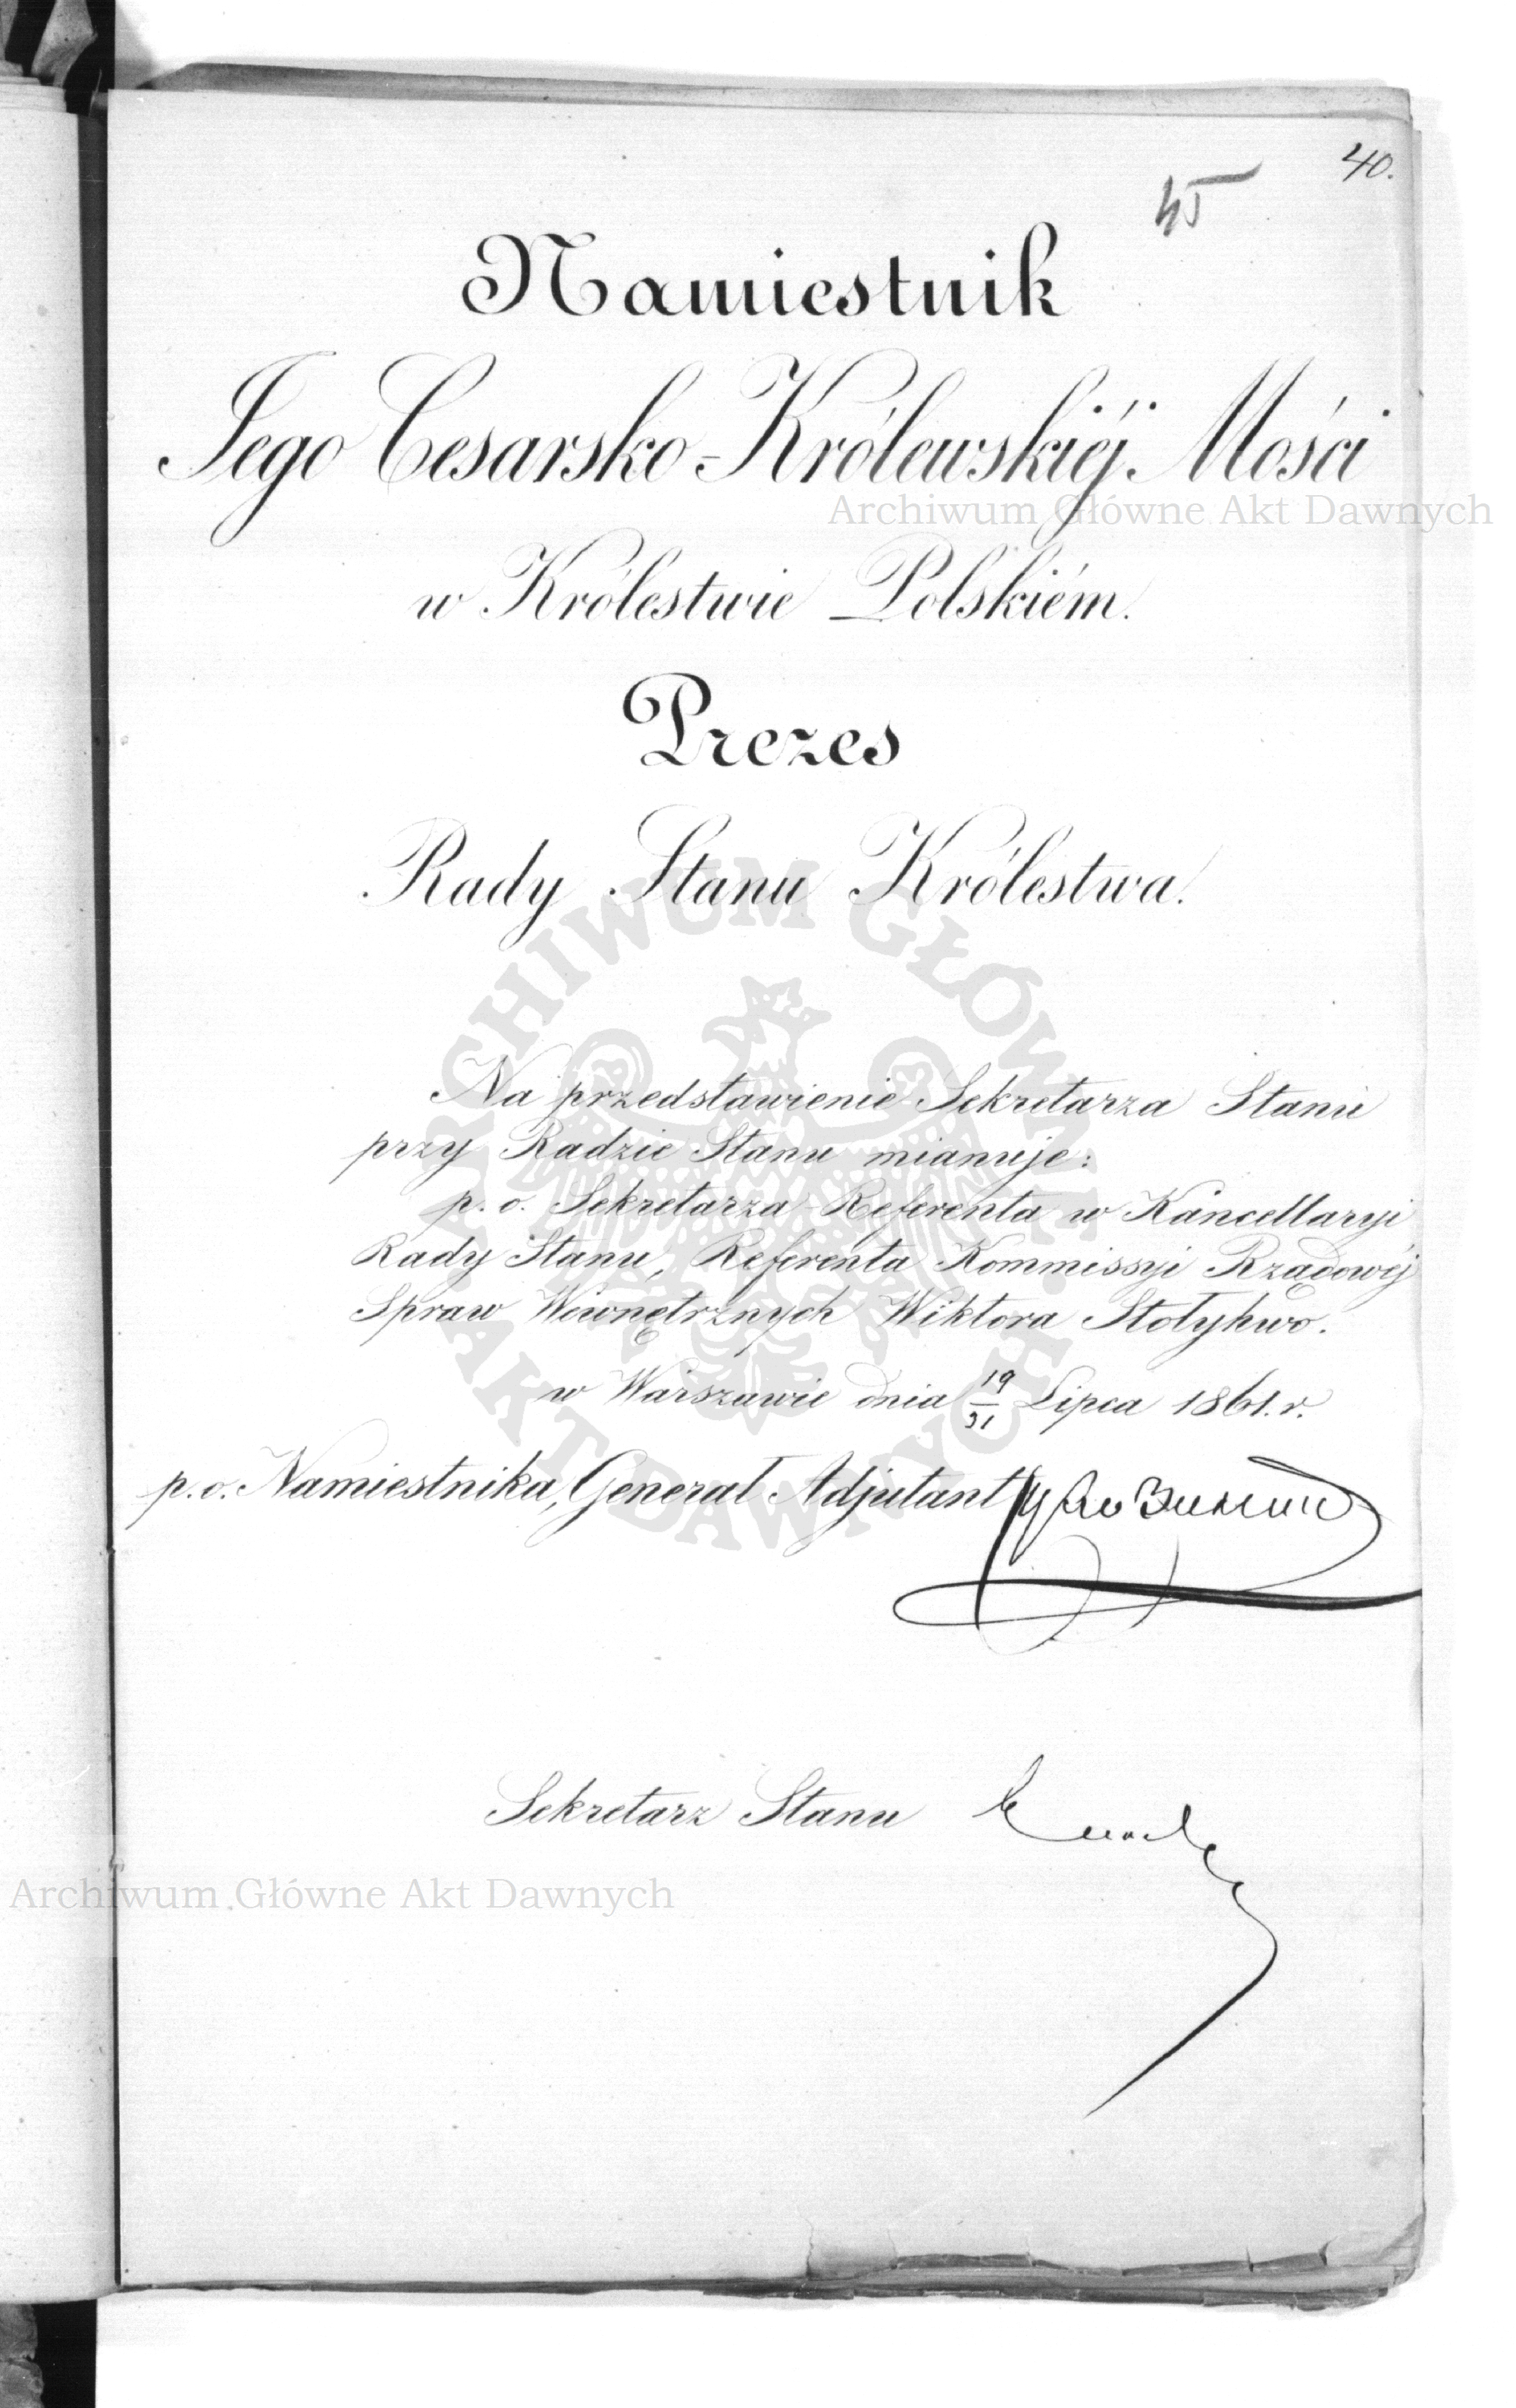 40.
45
Namiestnik
Jego Cesarsko-Królewskiéj Mości
Archiwum Główne Akt Dawnych
w Królestwie Polskiém.
Prezes
Rady Stanu Królestwa.
ARCHIWUM GŁÓWNE AKT DAWNYCH
Na przedstawienie Sekretarza Stanu
przy Radzie Stanu mianuje:
p. o. Sekretarza-Referenta w Kancellaryi
Rady Stanu, Referenta Kommissyi Rządowéj
Spraw Wewnętrznych Wiktora Stołyhwo.
w Warszawie dnia 19/31 Lipca 1861. r.
p. o. Namiestnika, Generał Adjutant
Sekretarz Stanu
Archiwum Główne Akt Dawnych